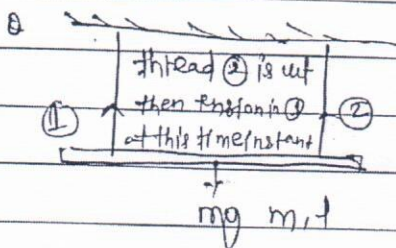 Q
thread ② is cut
then tension in ①
at this time instant
① ②
mg m, l